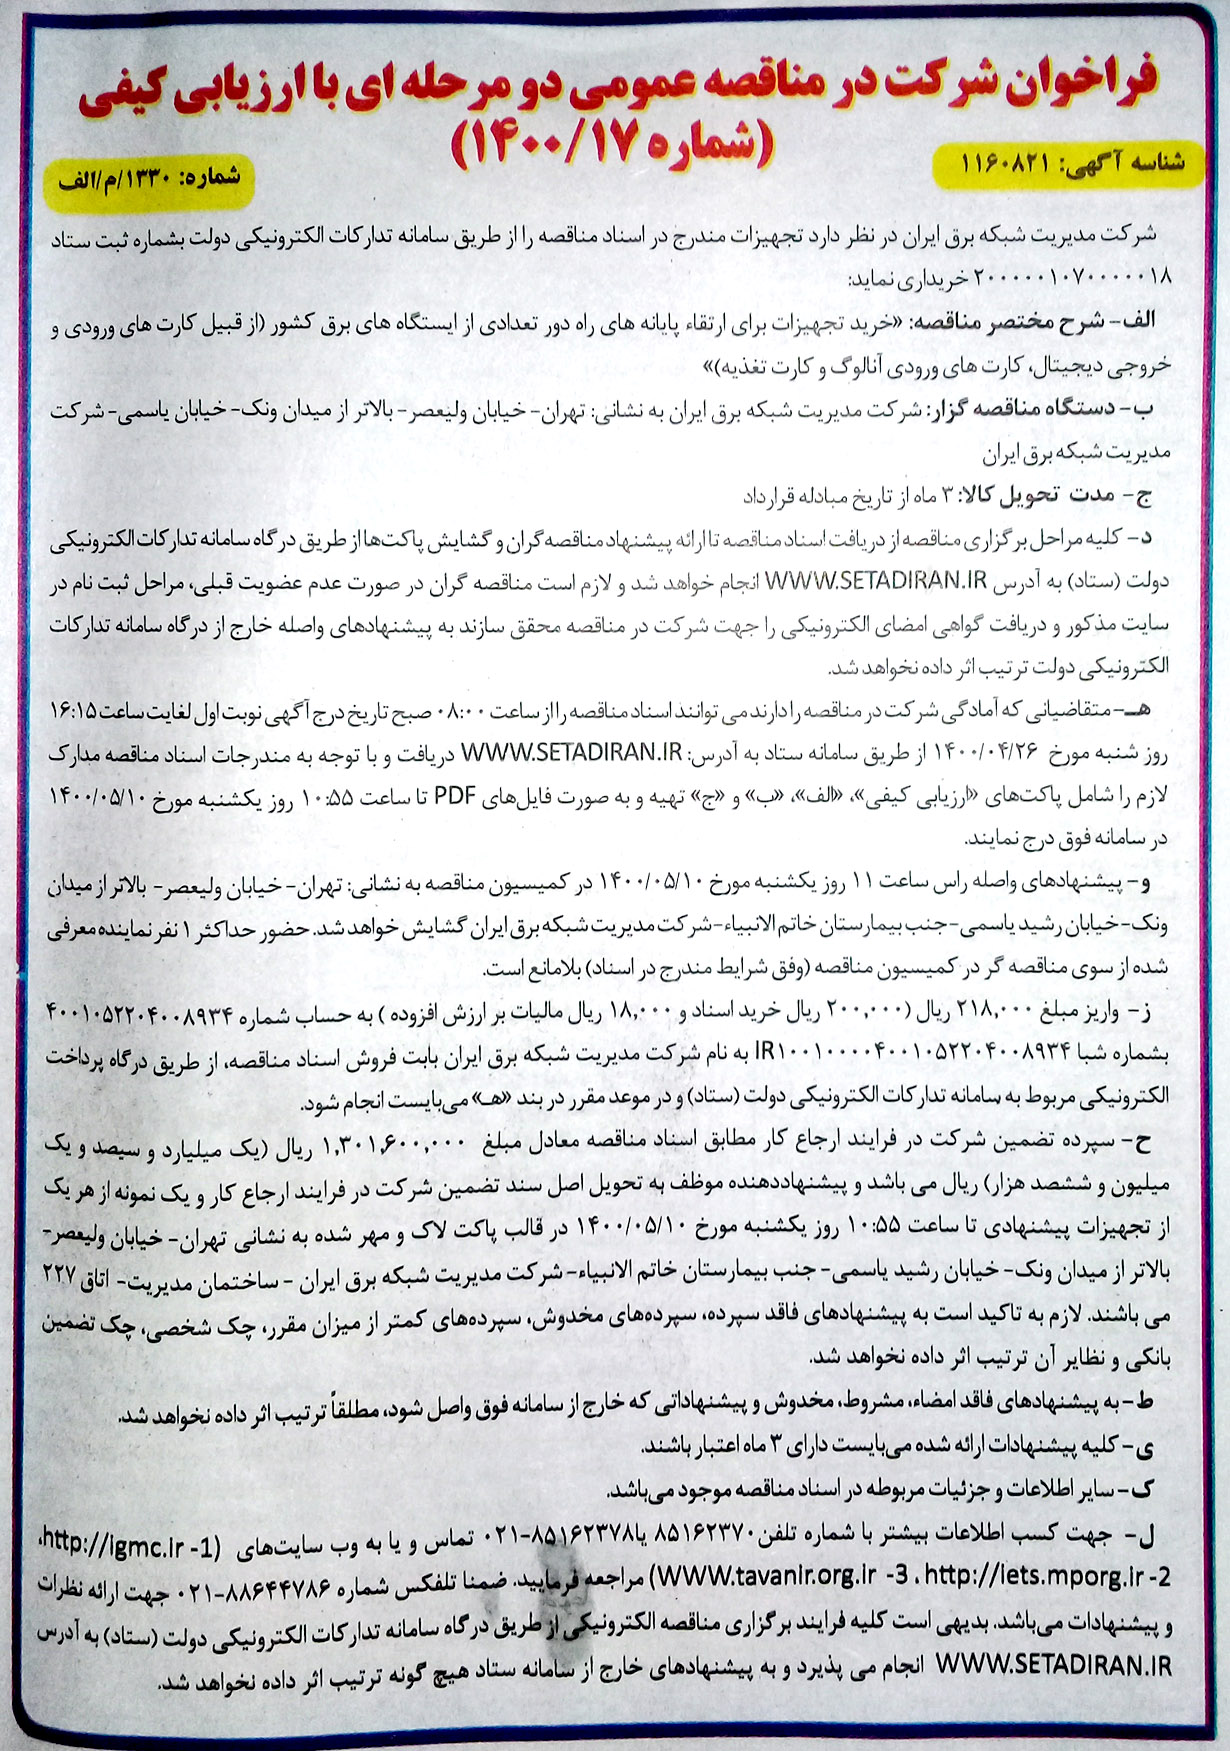 فراخوان شرکت در مناقصه عمومی دو مرحله ای با ارزیابی کیفی
(شماره ۱۴۰۰/۱۷)
شناسه آگهی: ۱۱۶۰۸۲۱
شماره: ۱۳۳۰/م/الف
شرکت مدیریت شبکه برق ایران در نظر دارد تجهیزات مندرج در اسناد مناقصه را از طریق سامانه تدارکات الکترونیکی دولت بشماره ثبت ستاد
۲۰۰۰۰۰۱۰۷۰۰۰۰۰۱۸ خریداری نماید:
الف- شرح مختصر مناقصه: «خرید تجهیزات برای ارتقاء پایانه های راه دور تعدادی از ایستگاه های برق کشور (از قبیل کارت های ورودی و
خروجی دیجیتال، کارت های ورودی آنالوگ و کارت تغذیه)»
ب- دستگاه مناقصه گزار: شرکت مدیریت شبکه برق ایران به نشانی: تهران- خیابان ولیعصر- بالاتر از میدان ونک- خیابان یاسمی- شرکت
مدیریت شبکه برق ایران
ج- مدت تحویل کالا: ۳ ماه از تاریخ مبادله قرارداد
د- کلیه مراحل برگزاری مناقصه از دریافت اسناد مناقصه تا ارائه پیشنهاد مناقصه‌گران و گشایش پاکت‌ها از طریق درگاه سامانه تدارکات الکترونیکی
دولت (ستاد) به آدرس WWW.SETADIRAN.IR انجام خواهد شد و لازم است مناقصه گران در صورت عدم عضویت قبلی، مراحل ثبت نام در
سایت مذکور و دریافت گواهی امضای الکترونیکی را جهت شرکت در مناقصه محقق سازند به پیشنهادهای واصله خارج از درگاه سامانه تدارکات
الکترونیکی دولت ترتیب اثر داده نخواهد شد.
هـ- متقاضیانی که آمادگی شرکت در مناقصه را دارند می توانند اسناد مناقصه را از ساعت ۰۸:۰۰ صبح تاریخ درج آگهی نوبت اول لغایت ساعت ۱۶:۱۵
روز شنبه مورخ ۱۴۰۰/۰۴/۲۶ از طریق سامانه ستاد به آدرس: WWW.SETADIRAN.IR دریافت و با توجه به مندرجات اسناد مناقصه مدارک
لازم را شامل پاکت‌های «ارزیابی کیفی»، «الف»، «ب» و «ج» تهیه و به صورت فایل‌های PDF تا ساعت ۱۰:۵۵ روز یکشنبه مورخ ۱۴۰۰/۰۵/۱۰
در سامانه فوق درج نمایند.
و- پیشنهادهای واصله راس ساعت ۱۱ روز یکشنبه مورخ ۱۴۰۰/۰۵/۱۰ در کمیسیون مناقصه به نشانی: تهران- خیابان ولیعصر- بالاتر از میدان
ونک- خیابان رشید یاسمی- جنب بیمارستان خاتم الانبیاء- شرکت مدیریت شبکه برق ایران گشایش خواهد شد. حضور حداکثر ۱ نفر نماینده معرفی
شده از سوی مناقصه گر در کمیسیون مناقصه (وفق شرایط مندرج در اسناد) بلامانع است.
ز- واریز مبلغ ۲۱۸,۰۰۰ ریال (۲۰۰,۰۰۰ ریال خرید اسناد و ۱۸,۰۰۰ ریال مالیات بر ارزش افزوده ) به حساب شماره ۴۰۰۱۰۵۲۲۰۴۰۰۸۹۳۴
بشماره شبا IR۱۰۰۱۰۰۰۰۴۰۰۱۰۵۲۲۰۴۰۰۸۹۳۴ به نام شرکت مدیریت شبکه برق ایران بابت فروش اسناد مناقصه، از طریق درگاه پرداخت
الکترونیکی مربوط به سامانه تدارکات الکترونیکی دولت (ستاد) و در موعد مقرر در بند «هـ» می‌بایست انجام شود.
ح- سپرده تضمین شرکت در فرایند ارجاع کار مطابق اسناد مناقصه معادل مبلغ ۱,۳۰۱,۶۰۰,۰۰۰ ریال (یک میلیارد و سیصد و یک
میلیون و ششصد هزار) ریال می باشد و پیشنهاددهنده موظف به تحویل اصل سند تضمین شرکت در فرایند ارجاع کار و یک نمونه از هر یک
از تجهیزات پیشنهادی تا ساعت ۱۰:۵۵ روز یکشنبه مورخ ۱۴۰۰/۰۵/۱۰ در قالب پاکت لاک و مهر شده به نشانی تهران- خیابان ولیعصر-
بالاتر از میدان ونک- خیابان رشید یاسمی- جنب بیمارستان خاتم الانبیاء- شرکت مدیریت شبکه برق ایران - ساختمان مدیریت- اتاق ۲۲۷
می باشند. لازم به تاکید است به پیشنهادهای فاقد سپرده، سپرده‌های مخدوش، سپرده‌های کمتر از میزان مقرر، چک شخصی، چک تضمین
بانکی و نظایر آن ترتیب اثر داده نخواهد شد.
ط- به پیشنهادهای فاقد امضاء، مشروط، مخدوش و پیشنهاداتی که خارج از سامانه فوق واصل شود، مطلقاً ترتیب اثر داده نخواهد شد.
ی- کلیه پیشنهادات ارائه شده می‌بایست دارای ۳ ماه اعتبار باشند.
ک- سایر اطلاعات و جزئیات مربوطه در اسناد مناقصه موجود می‌باشد.
ل- جهت کسب اطلاعات بیشتر با شماره تلفن ۸۵۱۶۲۳۷۰ یا ۸۵۱۶۲۳۷۸-۰۲۱ تماس و یا به وب سایت‌های (1- http://igmc.ir،
2- http://iets.mporg.ir ، 3- WWW.tavanir.org.ir) مراجعه فرمایید. ضمنا تلفکس شماره ۸۸۶۴۴۷۸۶-۰۲۱ جهت ارائه نظرات
و پیشنهادات می‌باشد. بدیهی است کلیه فرایند برگزاری مناقصه الکترونیکی از طریق درگاه سامانه تدارکات الکترونیکی دولت (ستاد) به آدرس
WWW.SETADIRAN.IR انجام می پذیرد و به پیشنهادهای خارج از سامانه ستاد هیچ گونه ترتیب اثر داده نخواهد شد.